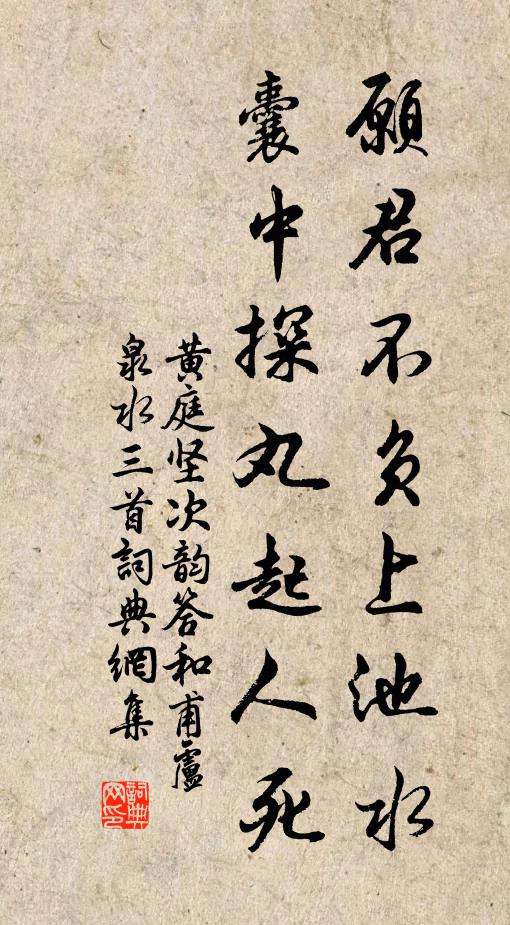 願君不負上池水
囊中探丸起人死
黄庭坚次韵答和甫盧
泉水三首詞典網集
詞典网印